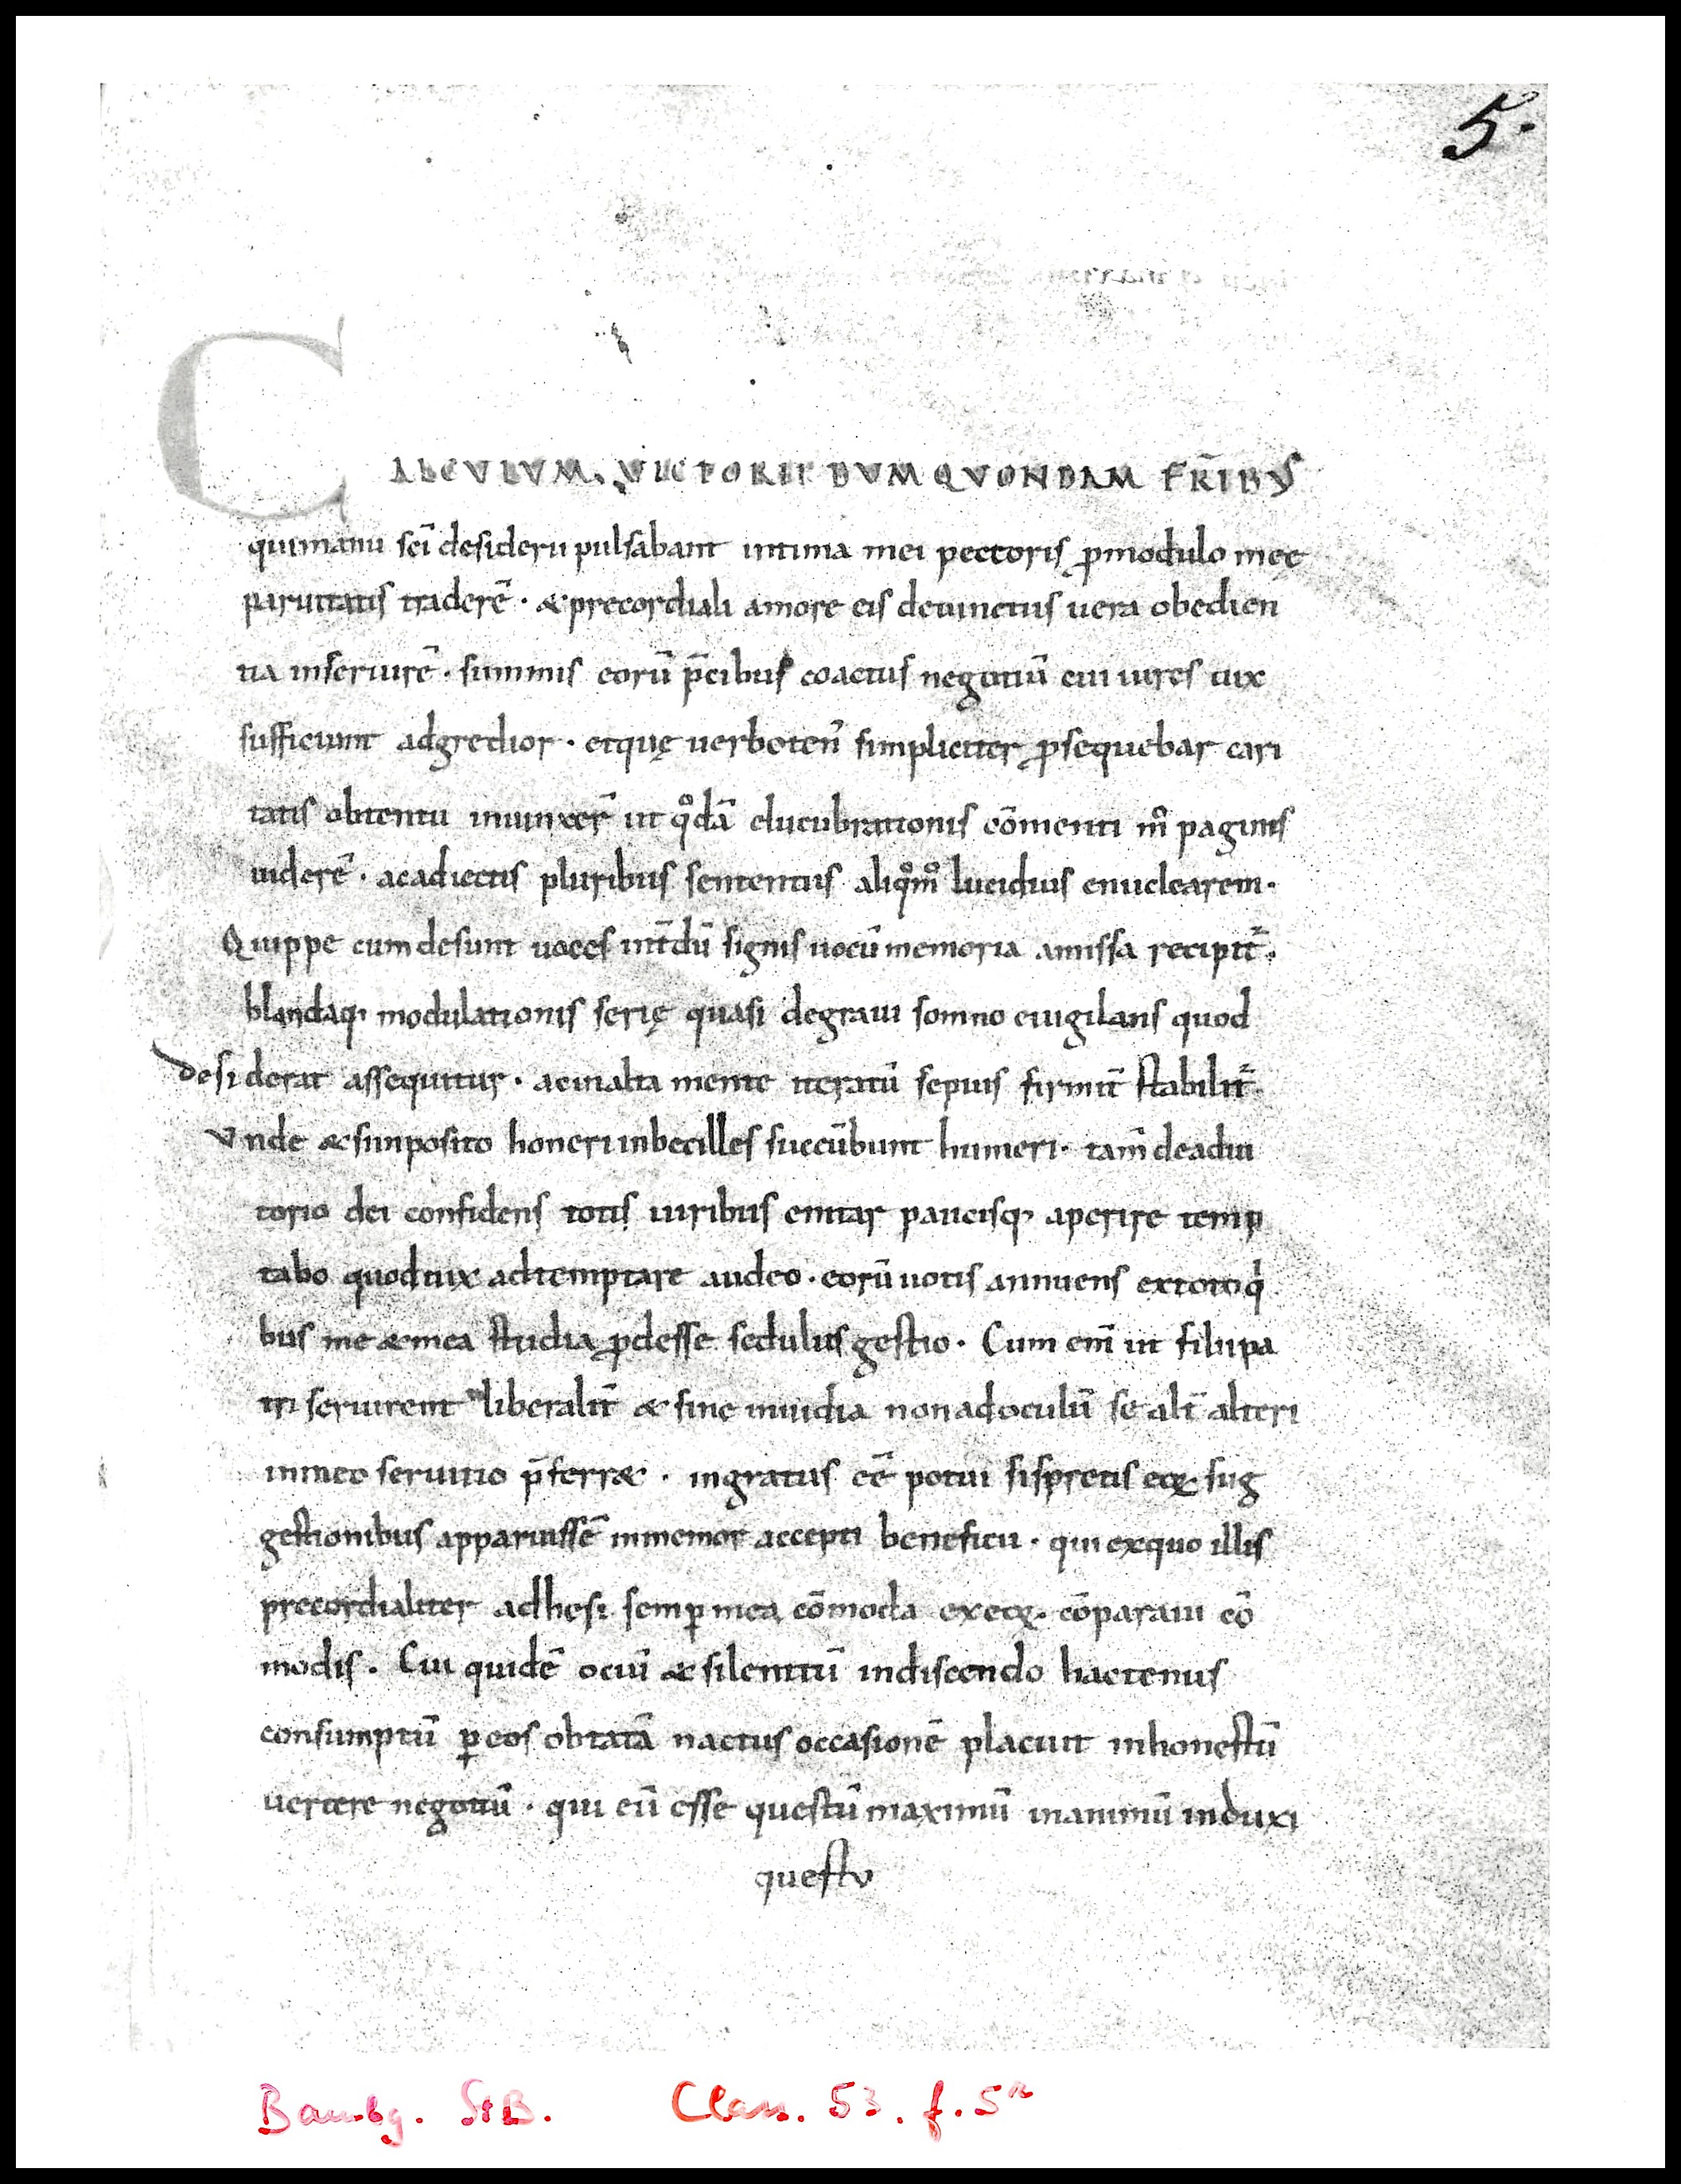 5.
CALCULUM. VICTORII DUM QUONDAM FR̄IBUS
qui manu sc̄i desiderii pulsabant intima mei pectoris ꝓmodulo meę
paruitatis traderē · & precordiali amore eis deuinctus uera obedien
tia inseruirē · summis eorū p̄cibus coactus negotiū cui uires uix
sufficiunt adgredior · et quę uerboten᷑ simpliciter ꝓsequebar cari
tatis obtentu iniunxer̄ ut qͦdā elucubrationis cōmenti mͦ paginis
uiderē · ac adiectis pluribus sententiis aliqͦmͦ lucidius enuclearem ·
Quippe cum desunt uoces int̄dū signis uocū memoria amissa recipit᷑ ·
blandaq· modulationis serię quasi de graui somno euigilans quod
desiderat assequitur · ac in alta mente iteratū sepius firmit̄ stabilit᷑ ·
Unde & si inposito honeri inbecilles succūbunt humeri · tam̄ de adiu
torio dei confidens totis uiribus enitar paucisq· aperire temp
tabo quod uix adtemptare audeo · eorū uotis annuens ex toto qͥ
bus me & mea studia ꝓdesse sedulus gestio · Cum eni᷑ ut filii pa
tri seruirent liberalit̄ & sine inuidia non ad oculū se alt̄ alteri
in meo seruitio p̄ferr& · ingratus eē potui si spretis eoꝝ sug
gestionibus apparuissē inmemor accepti beneficii · qui ex quo illis
precordialiter adhesi semꝑ mea cōmoda ex eoꝝ · cōparaui cō
modis · Cui quidē ociū & silentiū in discendo hactenus
consumptū ꝑ eos obtatā nactus occasionē placuit in honestū
uertere negotiū · qui eū esse questū maximū in animū induxi
questu
Bambg. StB. Class. 53. f. 5r